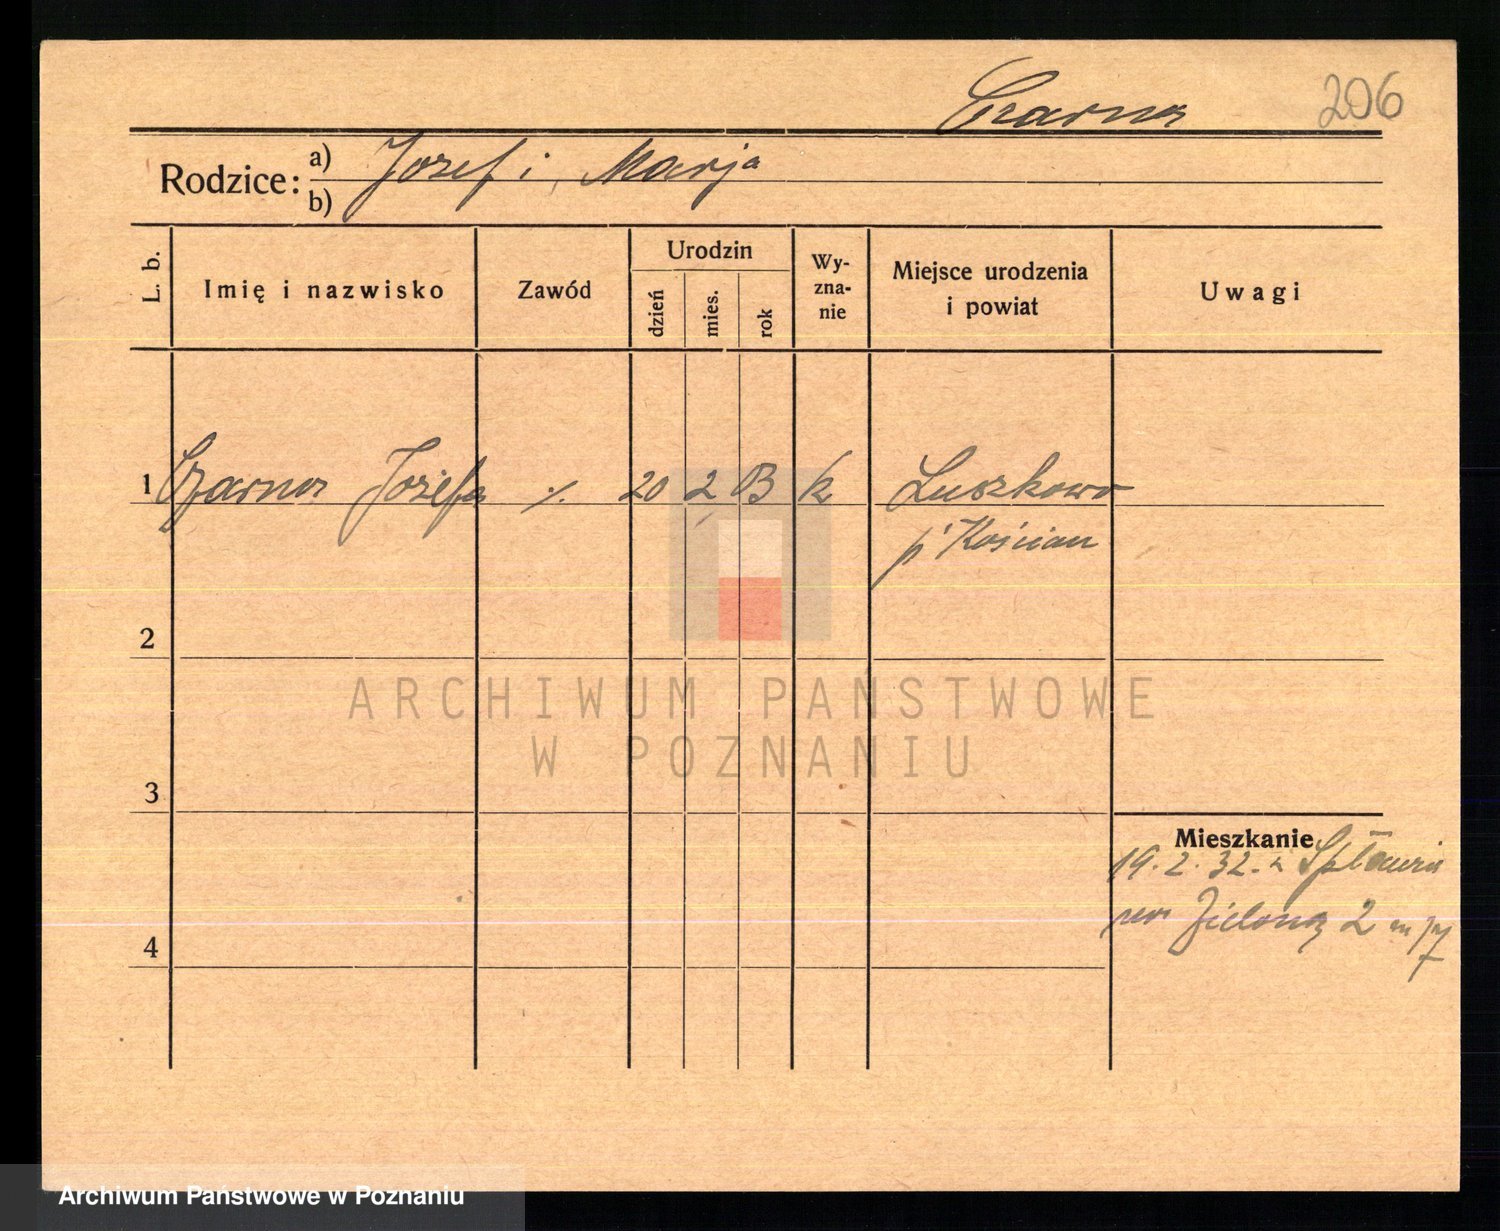 Czarna
206
Rodzice:
a) Jozef i Marja
b)
L. b.
Imię i nazwisko
Zawód
Urodzin
dzień
mies.
rok
Wy-
zna-
nie
Miejsce urodzenia
i powiat
Uwagi
1 Czarna Jozefa ./. 20 2 13 k Luszkowo
p' Kościan
2
ARCHIWUM PAŃSTWOWE
W POZNANIU
3
Mieszkanie
19. 2. 32. z Spławia
na Zieloną 2 m
4
Archiwum Państwowe w Poznaniu